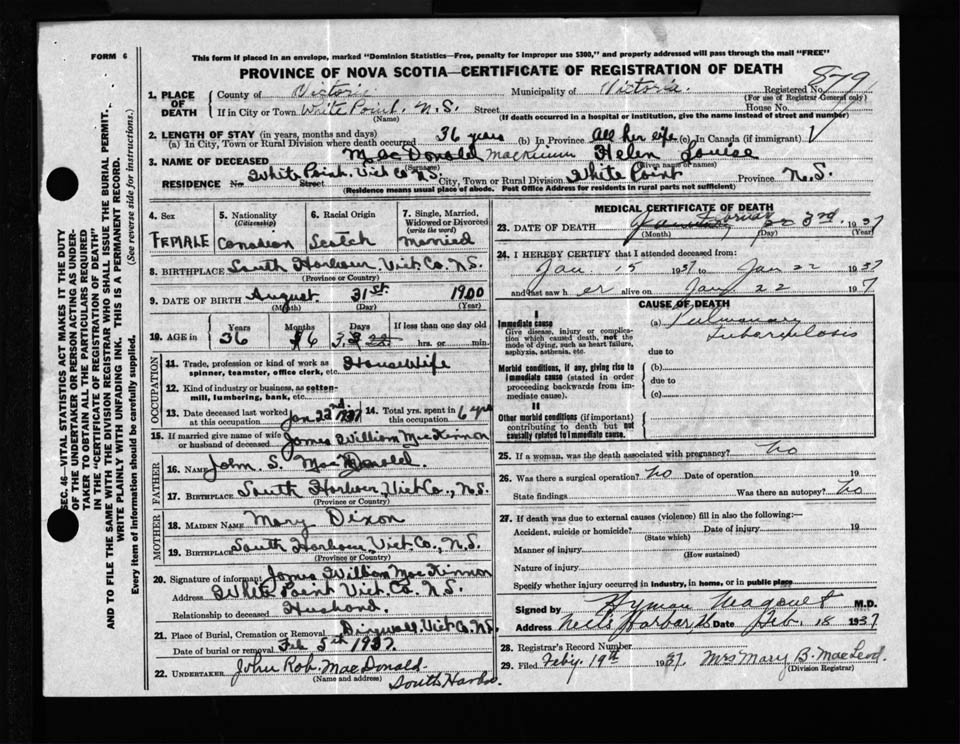 FORM 6
This form if placed in an envelope, marked "Dominion Statistics—Free, penalty for improper use $300," and properly addressed will pass through the mail "FREE"
PROVINCE OF NOVA SCOTIA—CERTIFICATE OF REGISTRATION OF DEATH
SEC. 46—VITAL STATISTICS ACT MAKES IT THE DUTY
OF THE UNDERTAKER OR PERSON ACTING AS UNDER-
TAKER TO OBTAIN ALL THE PARTICULARS REQUIRED
IN THE "CERTIFICATE OF REGISTRATION OF DEATH"
AND TO FILE THE SAME WITH THE DIVISION REGISTRAR WHO SHALL ISSUE THE BURIAL PERMIT.
WRITE PLAINLY WITH UNFADING INK. THIS IS A PERMANENT RECORD.
Every item of information should be carefully supplied. (See reverse side for instructions.)
1. PLACE OF DEATH County of Victoria Municipality of Victoria. Registered No. 879
(For use of Registrar General only)
If in City or Town White Point, N.S. Street House No.
(Name) (If death occurred in a hospital or institution, give the name instead of street and number)
2. LENGTH OF STAY (in years, months and days)
(a) In City, Town or Rural Division where death occurred 36 years (b) In Province All her life (c) In Canada (if immigrant)
3. NAME OF DECEASED MacDonald MacKinnon Helen Louise
(Surname) (Given name or names)
RESIDENCE No. Street White Point, Vict Co N.S. City, Town or Rural Division White Point Province N.S.
(Residence means usual place of abode. Post Office Address for residents in rural parts not sufficient)
4. Sex 5. Nationality (Citizenship) 6. Racial Origin 7. Single, Married, Widowed or Divorced (write the word)
FEMALE Canadian Scotch Married
8. BIRTHPLACE South Harbour, Vict. Co. N.S.
(Province or Country)
9. DATE OF BIRTH August 31st. 1900
(Month) (Day) (Year)
10. AGE in Years Months Days If less than one day old
36 6 3 hrs. or min.
OCCUPATION
11. Trade, profession or kind of work as spinner, teamster, office clerk, etc. Housewife
12. Kind of industry or business, as cotton-mill, lumbering, bank, etc.
13. Date deceased last worked at this occupation Jan 22nd 1937 14. Total yrs. spent in this occupation 6 yrs
15. If married give name of wife or husband of deceased James William MacKinnon
FATHER
16. NAME John S. MacDonald.
17. BIRTHPLACE South Harbour, Vict Co., N.S.
(Province or Country)
MOTHER
18. MAIDEN NAME Mary Dixon
19. BIRTHPLACE South Harbour, Vict. Co., N.S.
(Province or Country)
20. Signature of informant James William MacKinnon
Address White Point Vict. Co. N.S.
Relationship to deceased Husband.
21. Place of Burial, Cremation or Removal Dingwall, Vict Co. N.S.
Date of burial or removal Feb 5th 1937.
22. UNDERTAKER John Rob. MacDonald
(Name and address) South Harbor.
MEDICAL CERTIFICATE OF DEATH
23. DATE OF DEATH February 3rd. 1937
(Month) (Day) (Year)
24. I HEREBY CERTIFY that I attended deceased from:
Jan. 15 1937 to Jan 22 1937
and last saw her alive on Jan 22 197
CAUSE OF DEATH
I
Immediate cause (a) Pulmonary tuberculosis
Give disease, injury or complication which caused death, not the mode of dying, such as heart failure, asphyxia, asthenia, etc.
due to
Morbid conditions, if any, giving rise to immediate cause (stated in order proceeding backwards from immediate cause). (b)
due to
(c)
II
Other morbid conditions (if important) contributing to death but not causally related to immediate cause.
25. If a woman, was the death associated with pregnancy? No
26. Was there a surgical operation? No Date of operation 19
State findings Was there an autopsy? No
27. If death was due to external causes (violence) fill in also the following:—
Accident, suicide or homicide? Date of injury 19
(State which)
Manner of injury
(How sustained)
Nature of injury
Specify whether injury occurred in industry, in home, or in public place
Signed by Hyman M.D.
Address Neils Harbor Date Feb. 18 1937
28. Registrar's Record Number
29. Filed Feby. 19th 1937 Mrs Mary B. MacLeod
(Division Registrar)